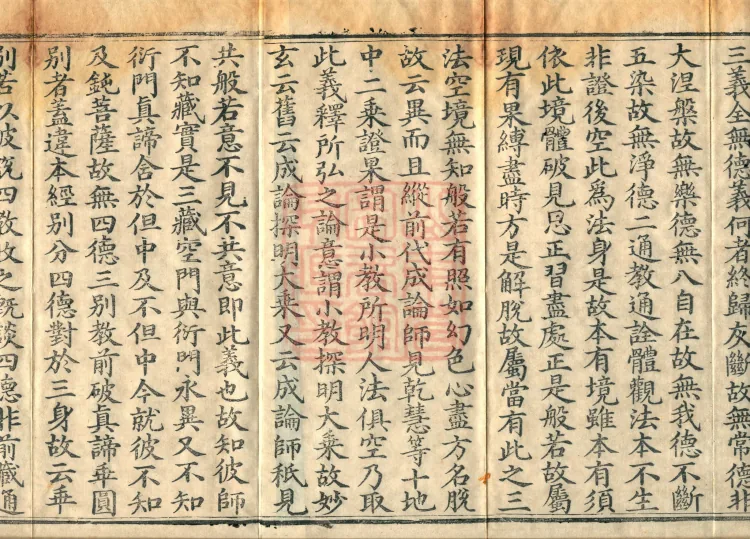 三義全無德義何者終歸灰斷故無常德非
大涅槃故無樂德無八自在故無我德不斷
五染故無淨德二通教通詮體觀法本不生
非證後空此為法身是故本有境雖本有須
依此境體破見思正習盡處正是般若故屬
現有果縛盡時方是解脫故屬當有此之三
法空境無知般若有照如幻色心盡方名脫
故云異而且縱前代成論師見乾慧等十地
中二乘證果謂是小教所明人法俱空乃取
此義釋所弘之論意謂小教探明大乘故妙
玄云舊云成論探明大乘又云成論師秖見
共般若意不見不共意即此義也故知彼師
不知藏實是三藏空門與衍門永異又不知
衍門真諦含於但中及不但中今就彼不知
及鈍菩薩故無四德三別教前破真諦乖圓
別者蓋違本經別分四德對於三身故云乖
別若以彼既四教收之既談四德非前藏通